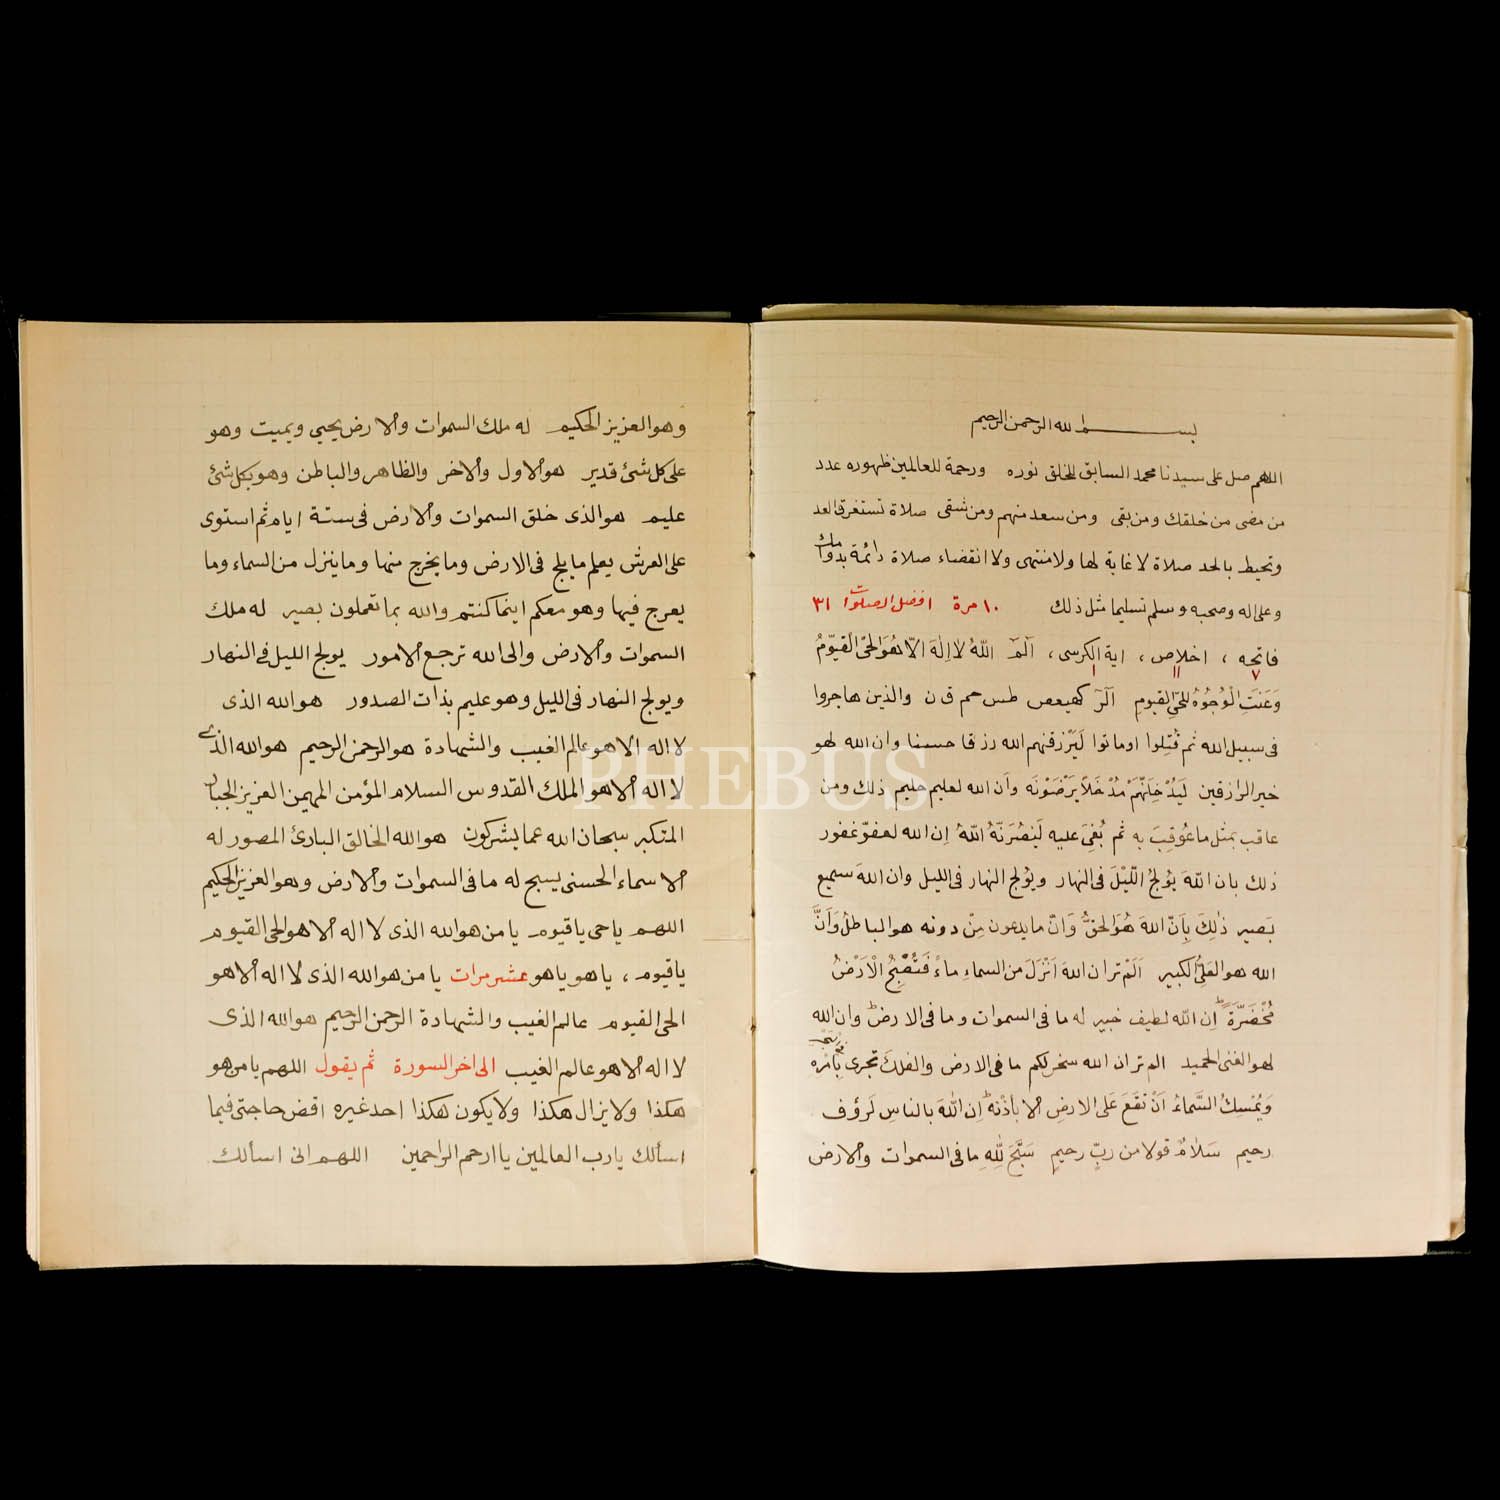 بسم الله الرحمن الرحيم
اللهم صل على سيدنا محمد السابق للخلق نوره ورحمة للعالمين ظهوره عدد
من مضى من خلقك ومن بقى ومن سعد منهم ومن شقى صلاة تستغرق العد
وتحيط بالحد صلاة لا غاية لها ولا منتهى ولا انقضاء صلاة دائمة بدوامك
وعلى اله وصحبه وسلم تسليما مثل ذلك ١٠ مرة افضل الصلوات ٣١
فاتحه ٧ ، اخلاص ١١ ، اية الكرسى ١ ، الٓمٓ اَللّٰهُ لا اِلٰهَ اِلَّا هُوَ الحَىُّ الْقَيّوُمُ
وَعَنَتِ الْوُجُوُهُ لِلْحَىِّ القيومِ الٓرٓ كهيعص طس حم ق ن والذين هاجروا
فى سبيل الله ثم قُتِلوا او ماتوا لَيَرْزقنهم الله رزقا حسنا وان الله لهو
خير الرازقين لَيُدْخِلَنَّهُمْ مُدْخَلاً يَرْضَوْنَه وَاَن الله لعليم حليم ذلك ومن
عاقب بمثل ما عُوقِبَ به ثم بُغِىَ عليه لَيَنْصُرَنَّهُ اللّٰهُ اِن الله لعفوّ غفور
ذلك بان اللّٰهَ يُولِجُ الَّليْلَ فى النهار ويُولج النهار فى الليل وان اللهَ سميع
بَصير ذٰلِكَ بِاَنّ اللهَ هُوَ الحَقُّ وَاَنّ ما يدعون مِنْ دونه هو الباطلُ وَاَنَّ
الله هو العَلِىُّ الكبير اَلَمْ تر ان اللهَ اَنْزَلَ من السماءِ ماءً فَتُصْبِحُ الْاَرْضُ
مُخْضَرّةً اِن اللّٰه لطيف خبير له ما فى السموات وما فى الارض وان الله
لهو الغنى الحميد الم تر ان الله سخر لكم ما فى الارض والفلكَ تجرى فى البحر بِاَمْره
وَيُمْسِكُ السَّماءَ اَنْ تَقَعَ عَلى الارضِ الا بأذْنه اِن اللّٰهَ بالناسِ لَرؤف
رحيم سَلامٌ قولا من ربٍّ رحيمٍ سَبَّحَ لِلّٰهِ ما فى السموات والارض
وهو العزيز الحكيم له ملك السموات والارض يحيى ويميت وهو
على كل شئ قدير هو الاول والاخر والظاهر والباطن وهو بكل شئ
عليم هو الذى خلق السموات والارض فى ستة ايام ثم استوى
على العرش يعلم ما يلج فى الارض وما يخرج منها وما ينزل من السماء وما
يعرج فيها وهو معكم اينما كنتم والله بما تعملون بصير له ملك
السموات والارض والى الله ترجع الامور يولج الليل فى النهار
ويولج النهار فى الليل وهو عليم بذات الصدور هو الله الذى
لا اله الا هو عالم الغيب والشهادة هو الرحمن الرحيم هو الله الذى
لا اله الا هو الملك القدوس السلام المؤمن المهيمن العزيز الجبار
المتكبر سبحان الله عما يشركون هو الله الخالق البارئ المصور له
الاسماء الحسنى يسبح له ما فى السموات والارض وهو العزيز الحكيم
اللهم يا حى يا قيوم يا من هو الله الذى لا اله الا هو الحى القيوم
يا قيوم ، يا هو يا هو عشر مرات يا من هو الله الذى لا اله الا هو
الحى القيوم عالم الغيب والشهادة الرحمن الرحيم هو الله الذى
لا اله الا هو عالم الغيب الى اخر السورة ثم يقول اللهم يا من هو
هكذا ولا يزال هكذا ولا يكون هكذا احد غيره اقض حاجتى فيما
اسألك يا رب العالمين يا ارحم الراحمين اللهم انى اسألك
PHEBUS